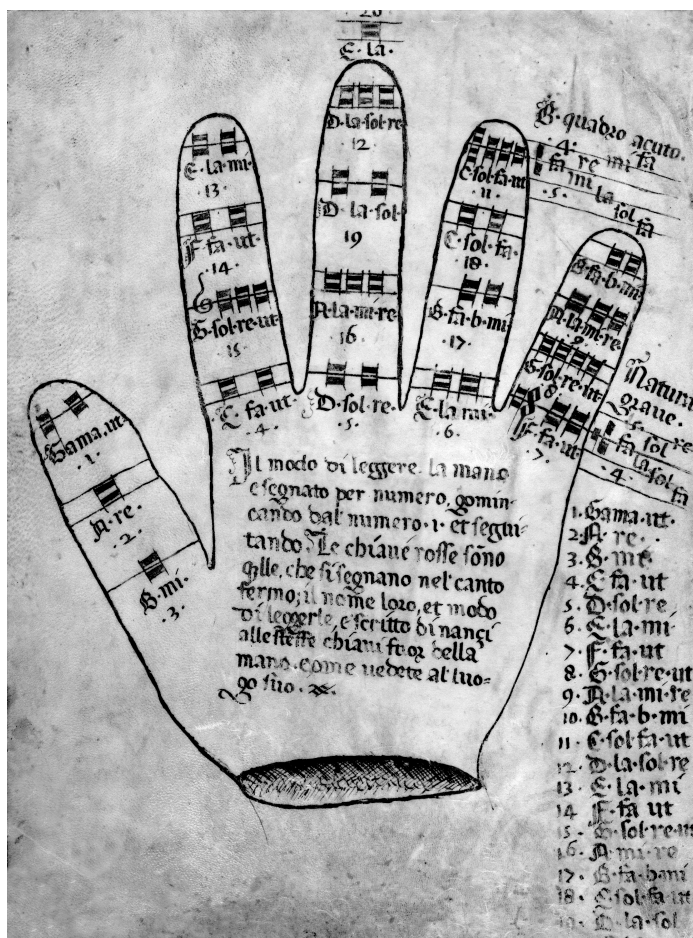 20
E·la·
D·la·sol·re
12
D·la·sol·
19
A·la·mi·re
16
D·sol·re·
·5·
E·la·mi·
13·
F·fa·ut·
·14·
G·sol·re·ut·
·15·
C·fa·ut·
·4·
C·sol·fa·ut
11·
C·sol·fa·
18·
B·fa·b·mi·
·17·
E·la·mi·
·6·
B·fa·b·mi·
A·la·mi·re·
·9·
G·sol·re·ut·
·8·
F·fa·ut·
·7·
Gama·ut·
·1·
A·re·
·2·
B·mi·
·3·
B·quadro acuto·
·4· fa re mi fa
fa mi la sol fa
·5·
Natura
grave·
·5· re
fa sol
la sol fa
·4·
Il modo di leggere la mano
e segnato per numero, comin-
cando dal numero·1· et segui-
tando. Le chiave rosse sono
qlle, che si segnano nel canto
fermo; il nome loro, et modo
di leggerle, e scritto dinanci
alle steffe chiavi fuor della
mano·come vedete al luo-
go suo·
1·Gama·ut·
2·A·re·
3·B·mi·
4·C·fa·ut
5·D·sol·re
6·E·la·mi
7·F·fa·ut
8·G·sol·re·ut
9·A·la·mi·re
10·B·fa·b·mi
11·C·sol·fa·ut
12·D·la·sol·re
13·E·la·mi
14 F·fa ut
15·G·sol·re·u
16·A·mi·re
17·B·fa·b·mi
18·C·sol·fa·ut
19·D·la·sol